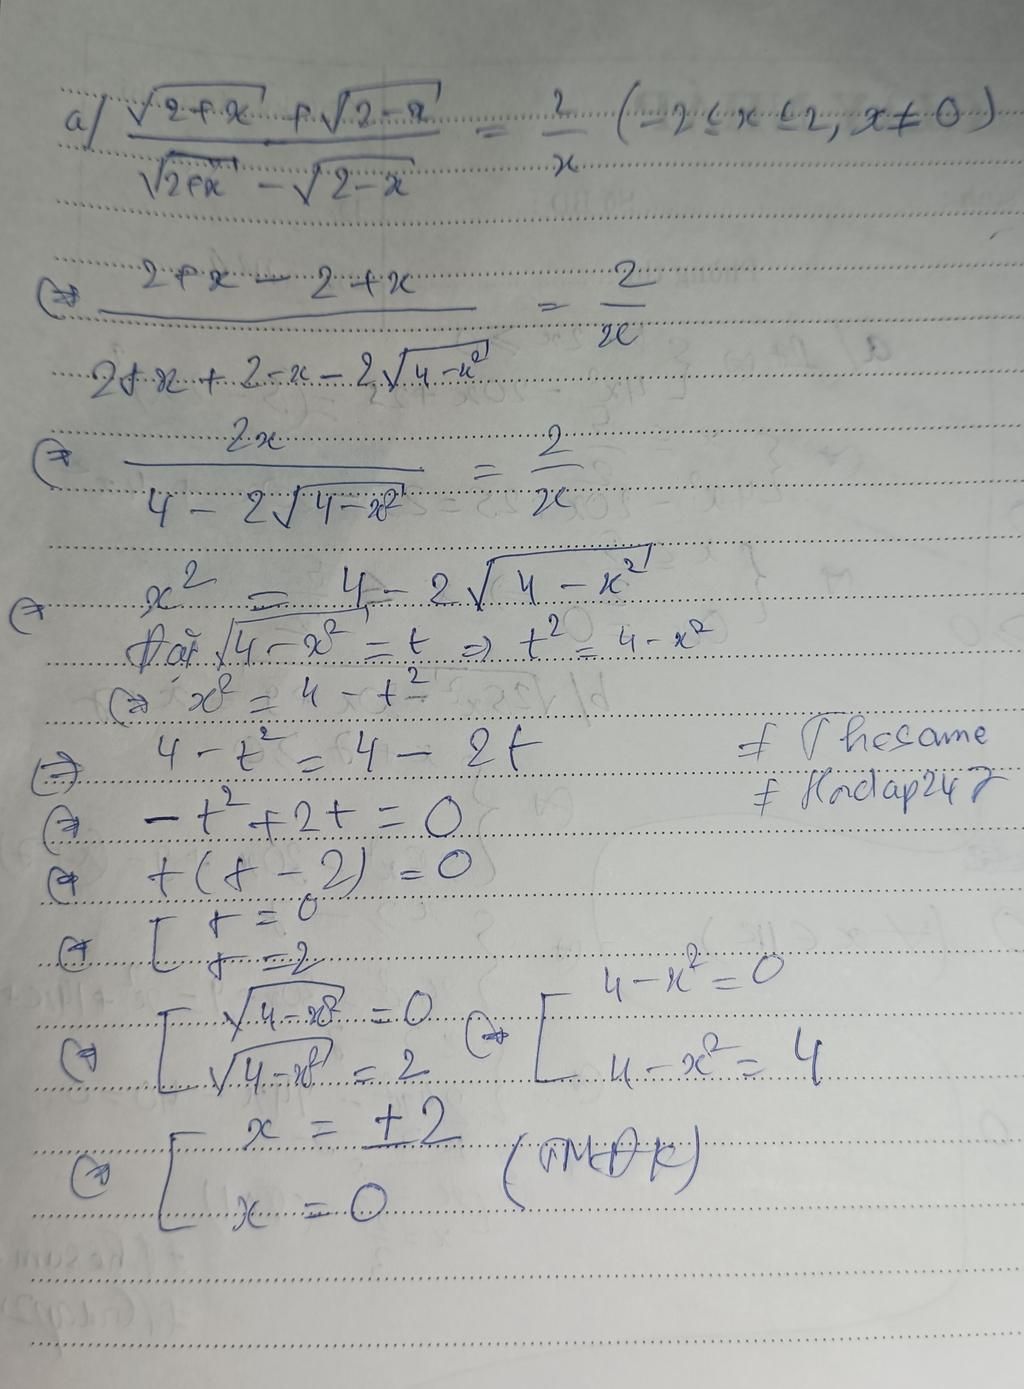 a/ (√(2+x) + √(2-x)) / (√(2+x) - √(2-x)) = 2/x (-2 ≤ x ≤ 2, x ≠ 0)
⇔ (2+x - 2+x) / (2+x+2-x-2√(4-x²)) = 2/x
⇔ 2x / (4 - 2√(4-x²)) = 2/x
⇔ x² = 4 - 2√(4-x²)
Đặt √(4-x²) = t ⇒ t² = 4-x²
⇔ x² = 4 - t²
⇔ 4 - t² = 4 - 2t
# Thesame
⇔ -t² + 2t = 0
# Hoidap247
⇔ t(t-2) = 0
⇔ [ t = 0
t = 2
⇔ [ √(4-x²) = 0 ⇔ [ 4-x² = 0
√(4-x²) = 2 4-x² = 4
⇔ [ x = ±2 (TMĐK)
x = 0